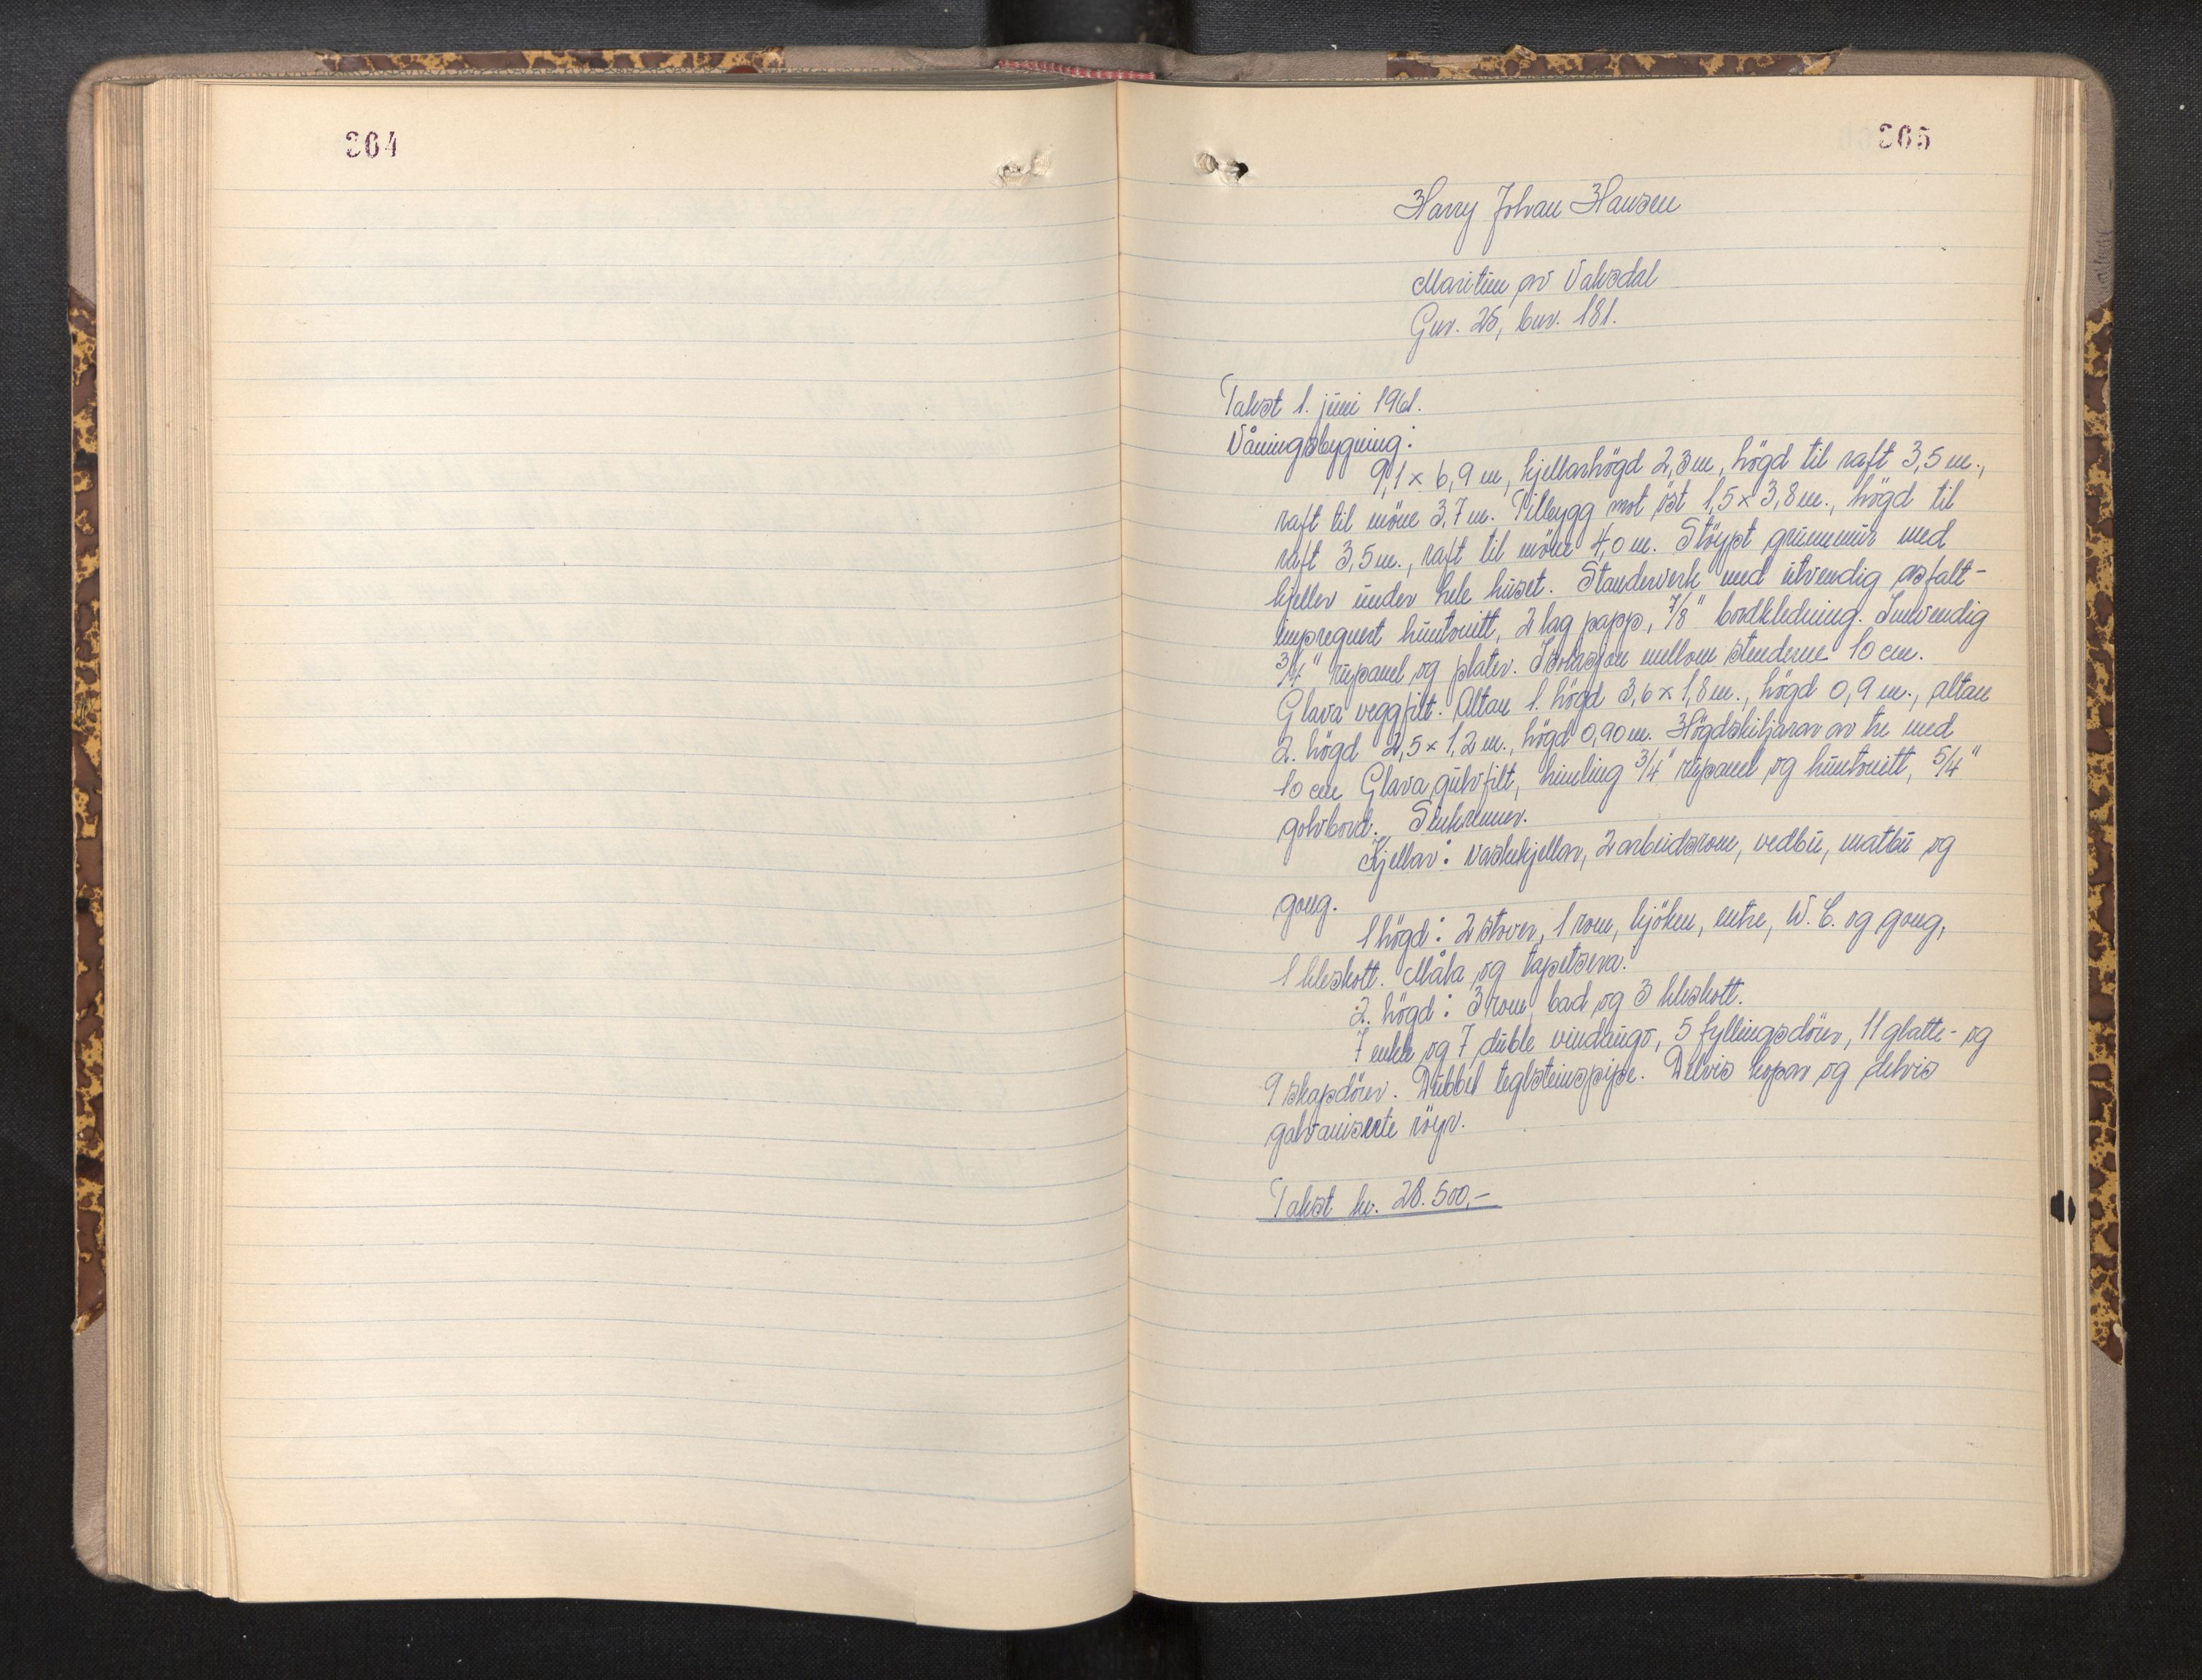 364
365
Harry Johan Hansen
Maritun av Vaksdal
Gnr. 25, bnr. 181.
Takst 1. juni 1961.
Våningsbygning:
9,1 x 6,9 m, kjellarhögd 2,3 m, högd til raft 3,5 m.,
raft til möne 3,7 m. Tilbygg mot öst 1,5 x 3,8 m., högd til
raft 3,5 m., raft til möne 4,0 m. Stöypt grunnmur med
kjeller under hele huset. Standerverk med utvendig asfalt-
impregnert huntonitt, 2 lag papp, 7/8" bordkledning. Innvendig
3/4" rupanel og plater. Isolasjon mellom stenderne 10 cm.
Glava veggfilt. Altan 1. högd 3,6 x 1,8 m., högd 0,9 m., altan
2. högd 2,5 x 1,2 m., högd 0,90 m. Högdskiljarar av tre med
10 cm Glava gulvfilt, himling 3/4" rupanel og huntonitt, 5/4"
golvbord.
Kjellar: vaskekjellar, 2 arbeidsrom, vedbu, matbu og
gong.
1 högd: 2 stover, 1 rom, kjöken, entre, W.C. og gong,
1 kleskott. Måla og tapetsera.
2. högd: 3 rom, bad og 3 kleskott.
7 enkle og 7 duble vindaugo, 5 fyllingsdörer, 11 glatte- og
9 skapdörer. Dubbel teglsteinspipe. Delvis kopar og delvis
galvaniserte röyr.
Takst kr. 28.500,-